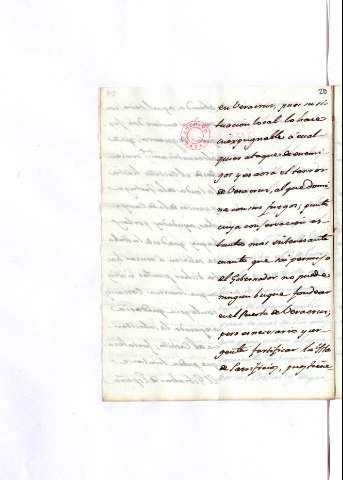 20
en Veracruz, pues su si-
tuacion local lo hace
inexpugnable a cual-
quier ataque de enemi-
gos y es acia el terror
de Veracruz, al que domi-
na con sus fuegos; punto
cuya conservacion es
tanto mas interesante
cuanto que sin permiso
el Gobernador no puede
ningun buque fondear
en el Puerto de Veracruz;
pero es necesario y ur-
gente fortificar la Ysla
de Sacrificios, pues tiene